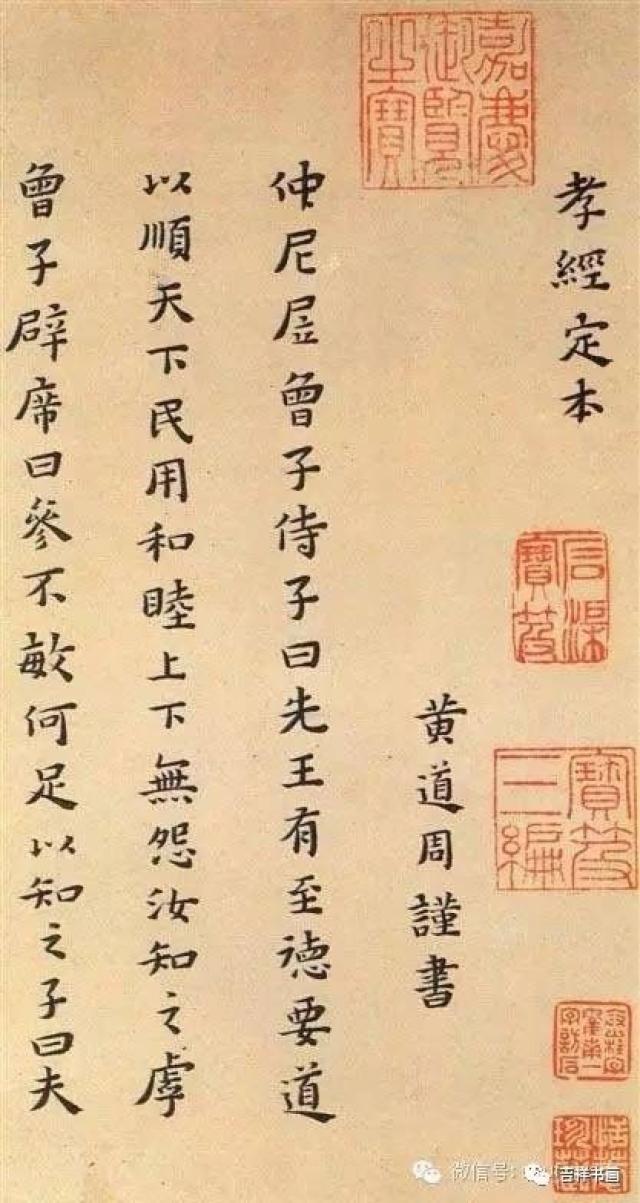 孝經定本
黄道周謹書
仲尼凥曾子侍子曰先王有至徳要道
以順天下民用和睦上下無怨汝知之虖
曾子辟席曰參不敏何足以知之子曰夫
嘉慶御覽之寶
石渠寶笈
寶笈三編
微信号:
吉祥书画